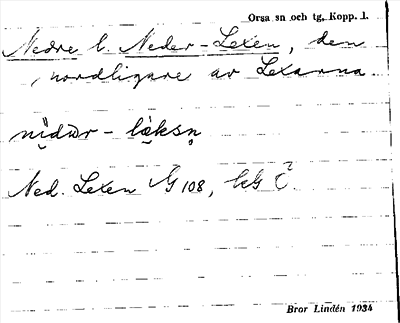 Orsa sn och tg, Kopp. l.
Nedre l. Neder-Lexen, den
nordligare av Lexarna
Ned. Lexen G 108,
Bror Lindén 1934